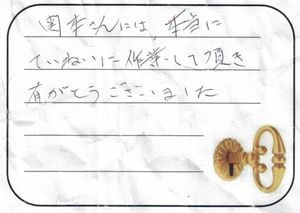 岡本さんには、本当に
ていねいに作業して頂き
有がとうございました